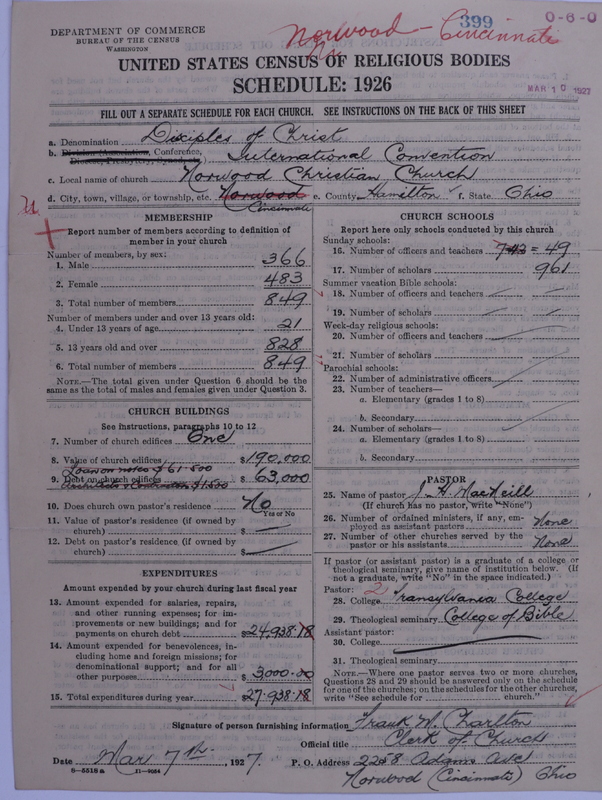 399
O-6-0
Norwood - Cincinnati
DEPARTMENT OF COMMERCE
BUREAU OF THE CENSUS
WASHINGTON
UNITED STATES CENSUS OF RELIGIOUS BODIES
SCHEDULE: 1926
MAR 10 1927
FILL OUT A SEPARATE SCHEDULE FOR EACH CHURCH. SEE INSTRUCTIONS ON THE BACK OF THIS SHEET
a. Denomination Disciples of Christ
b. Division (Association, Conference, Diocese, Presbytery, Synod, etc.) International Convention
c. Local name of church Norwood Christian Church
d. City, town, village, or township, etc. Norwood Cincinnati e. County Hamilton f. State Ohio
MEMBERSHIP
Report number of members according to definition of
member in your church
Number of members, by sex:
1. Male 366
2. Female 483
3. Total number of members 849
Number of members under and over 13 years old:
4. Under 13 years of age 21
5. 13 years old and over 828
6. Total number of members 849
NOTE.—The total given under Question 6 should be
same as the total of males and females given under Question 3.
CHURCH BUILDINGS
See instructions, paragraphs 10 to 12
7. Number of church edifices One
8. Value of church edifices $190,000
Loan on notes $61-500
9. Debt on church edifices $63,000
Architects & Contractors $1500
10. Does church own pastor's residence No
Yes or No
11. Value of pastor's residence (if owned by
church) $
12. Debt on pastor's residence (if owned by
church) $
EXPENDITURES
Amount expended by your church during last fiscal year
13. Amount expended for salaries, repairs,
and other running expenses; for im-
provements or new buildings; and for
payments on church debt $24,938.18
14. Amount expended for benevolences, in-
cluding home and foreign missions; for
denominational support; and for all
other purposes $3,000.00
15. Total expenditures during year $27,938.18
CHURCH SCHOOLS
Report here only schools conducted by this church
Sunday schools:
16. Number of officers and teachers 7-42 = 49
17. Number of scholars 961
Summer vacation Bible schools:
18. Number of officers and teachers
19. Number of scholars
Week-day religious schools:
20. Number of officers and teachers
21. Number of scholars
Parochial schools:
22. Number of administrative officers
23. Number of teachers—
a. Elementary (grades 1 to 8)
b. Secondary
24. Number of scholars—
a. Elementary (grades 1 to 8)
b. Secondary
PASTOR
25. Name of pastor J. H. MacNeill
(If church has no pastor, write "None")
26. Number of ordained ministers, if any, em-
ployed as assistant pastors None
27. Number of other churches served by the
pastor or his assistants None
If pastor (or assistant pastor) is a graduate of a college or
theological seminary, give name of institution below. (If
not a graduate, write "No" in the space indicated.)
Pastor:
28. College Transylvania College
29. Theological seminary College of Bible
Assistant pastor:
30. College
31. Theological seminary
NOTE.—Where one pastor serves two or more churches,
Questions 28 and 29 should be answered only on the schedule
for one of the churches; on the schedules for the other churches,
write "See schedule for church."
Signature of person furnishing information Frank W. Charlton
Official title Clerk of Church
Date Mar 7th, 1927. P. O. Address 2258 Adams Ave
Norwood (Cincinnati) Ohio
8-5518a 11-9084